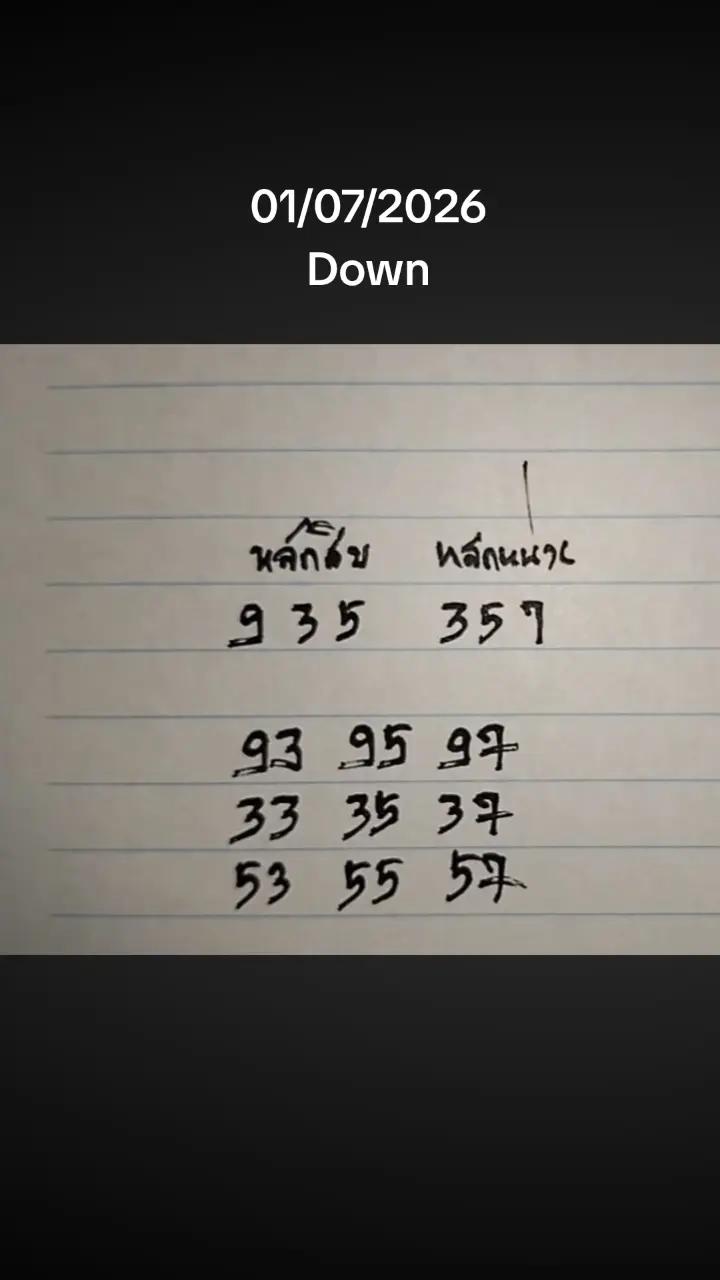 01/07/2026
Down
หลักสิบ หลักหน่วย
9 3 5 3 5 7
93 95 97
33 35 37
53 55 57